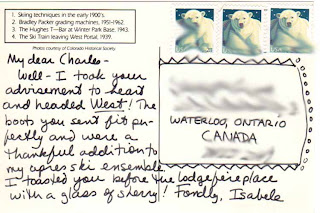 1. Skiing techniques in the early 1900's.
2. Bradley Packer grading machines, 1951-1962.
3. The Hughes T-Bar at Winter Park Base, 1943.
4. The Ski Train leaving West Portal, 1939.
Photos courtesy of Colorado Historical Society.
My dear Charles-
Well- I took your
advisement to heart
and headed West! The
boots you sent fit per-
fectly and were a
thankful addition to
my apres ski ensemble.
I toasted you before the lodge fireplace
with a glass of sherry! Fondly, Isabele
WATERLOO, ONTARIO
CANADA